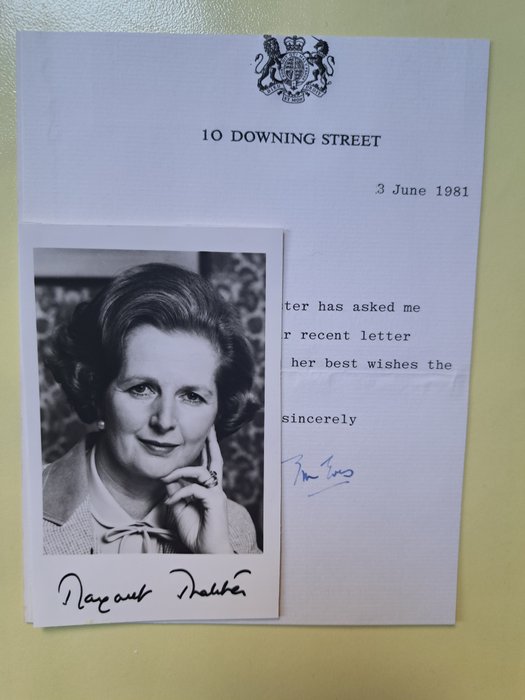 10 DOWNING STREET
3 June 1981
ster has asked me
r recent letter
her best wishes the
sincerely
Margaret Thatcher